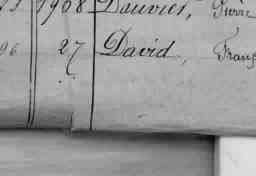 1908 Douvier, Pierre
96 27 David, Franç